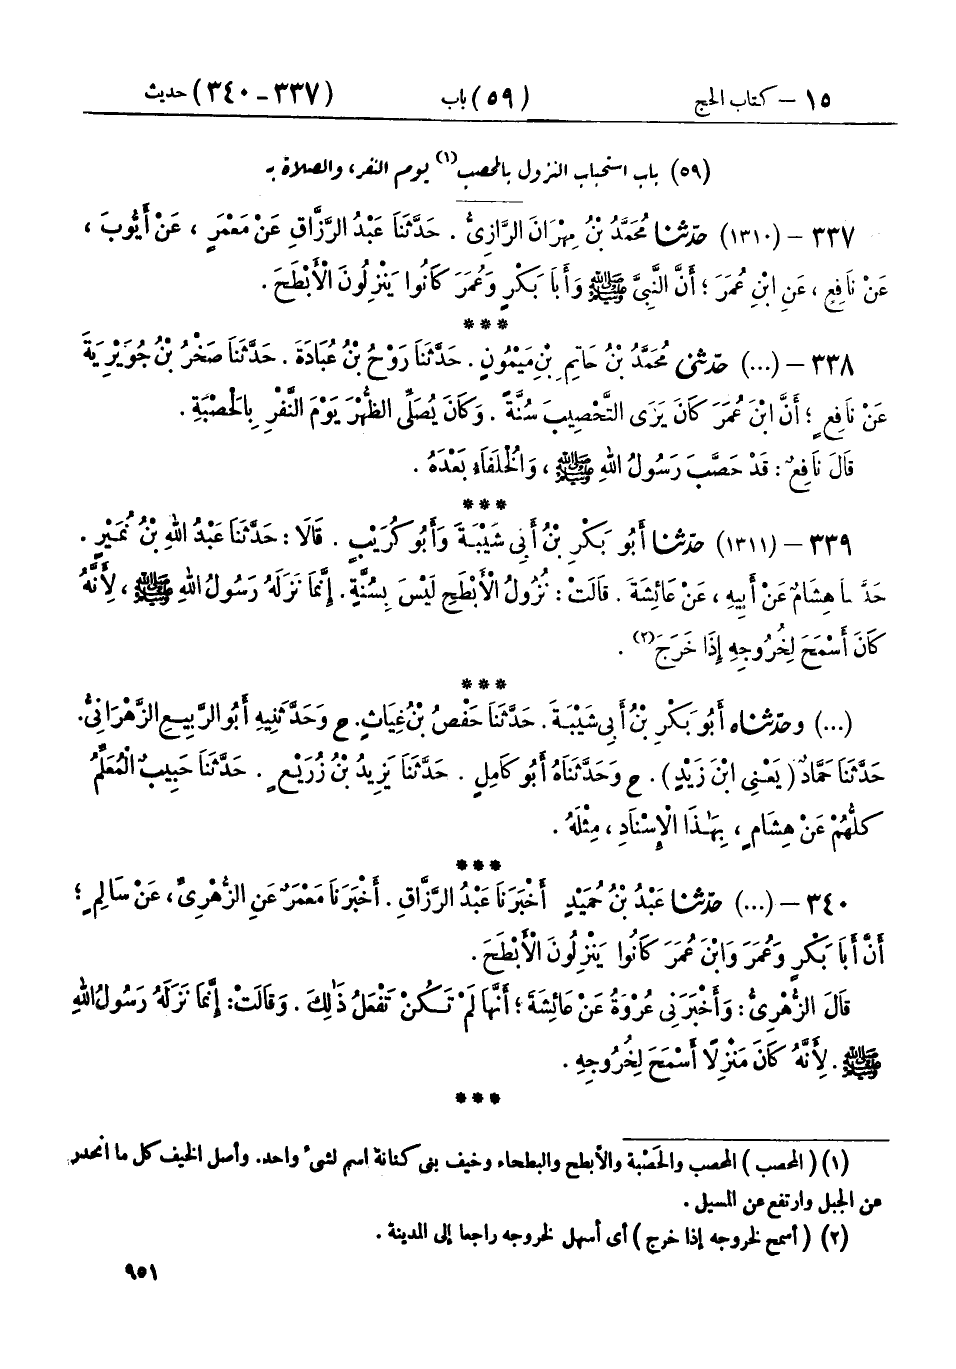 ١٥ – كتاب الحج (٥٩) باب (٣٣٧-٣٤٠) حديث
(٥٩) باب استحباب النزول بالمحصب(١) يوم النفر، والصلاة به
٣٣٧ – (١٣١٠) حدّثنا مُحَمَّدُ بْنُ مِهْرَانَ الرَّازِىُّ . حَدَّثَنَا عَبْدُ الرَّزَّاقِ عَنْ مَعْمَرٍ ، عَنْ أَيُّوبَ ،
عَنْ نَافِعٍ ، عَنِ ابْنِ عُمَرَ ؛ أَنَّ النَّبِىَّ ﷺ وَأَبَا بَكْرٍ وَعُمَرَ كَانُوا يَنْزِلُونَ الْأَبْطَحَ .
***
٣٣٨ – (...) حدّثنى مُحَمَّدُ بْنُ حَاتِمِ بْنِ مَيْمُونٍ . حَدَّثَنَا رَوْحُ بْنُ عُبَادَةَ . حَدَّثَنَا صَخْرُ بْنُ جُوَيْرِيَةَ
عَنْ نَافِعٍ ؛ أَنَّ ابْنَ عُمَرَ كَانَ يَرَى التَّحْصِيبَ سُنَّةً . وَكَانَ يُصَلِّى الظُّهْرَ يَوْمَ النَّفْرِ بِالْحَصْبَةِ .
قَالَ نَافِعٌ : قَدْ حَصَّبَ رَسُولُ اللهِ ﷺ ، وَالْخُلَفَاءُ بَعْدَهُ .
***
٣٣٩ – (١٣١١) حدّثنا أَبُو بَكْرِ بْنُ أَبِى شَيْبَةَ وَأَبُو كُرَيْبٍ . قَالَا : حَدَّثَنَا عَبْدُ اللهِ بْنُ نُمَيْرٍ .
حَدَّثَنَا هِشَامٌ عَنْ أَبِيهِ ، عَنْ عَائِشَةَ . قَالَتْ : نُزُولُ الْأَبْطَحِ لَيْسَ بِسُنَّةٍ . إِنَّمَا نَزَلَهُ رَسُولُ اللهِ ﷺ ، لِأَنَّهُ
كَانَ أَسْمَحَ لِخُرُوجِهِ إِذَا خَرَجَ(٢) .
***
(...) وحدّثناه أَبُو بَكْرِ بْنُ أَبِى شَيْبَةَ . حَدَّثَنَا حَفْصُ بْنُ غِيَاثٍ. ح وَحَدَّثَنِيهِ أَبُو الرَّبِيعِ الزَّهْرَانِىُّ.
حَدَّثَنَا حَمَّادٌ ( يَعْنِى ابْنَ زَيْدٍ ) . ح وَحَدَّثَنَاهُ أَبُو كَامِلٍ . حَدَّثَنَا يَزِيدُ بْنُ زُرَيْعٍ . حَدَّثَنَا حَبِيبٌ الْمُعَلِّمُ
كُلُّهُمْ عَنْ هِشَامٍ ، بِهَذَا الْإِسْنَادِ ، مِثْلَهُ .
***
٣٤٠ – (...) حدّثنا عَبْدُ بْنُ حُمَيْدٍ أَخْبَرَنَا عَبْدُ الرَّزَّاقِ . أَخْبَرَنَا مَعْمَرٌ عَنِ الزُّهْرِىِّ ، عَنْ سَالِمٍ ؛
أَنَّ أَبَا بَكْرٍ وَعُمَرَ وَابْنَ عُمَرَ كَانُوا يَنْزِلُونَ الْأَبْطَحَ .
قَالَ الزُّهْرِىُّ : وَأَخْبَرَنِى عُرْوَةُ عَنْ عَائِشَةَ ؛ أَنَّهَا لَمْ تَكُنْ تَفْعَلُ ذَلِكَ . وَقَالَتْ: إِنَّمَا نَزَلَهُ رَسُولُ اللهِ
ﷺ . لِأَنَّهُ كَانَ مَنْزِلًا أَسْمَحَ لِخُرُوجِهِ .
***
(١) ( المحصب ) المحصب والحَصْبة والأبطح والبطحاء وخيف بنى كنانة اسم لشىء واحد. وأصل الخيف كل ما انحدر
عن الجبل وارتفع عن المسيل .
(٢) ( أسمح لخروجه إذا خرج ) أى أسهل لخروجه راجعا إلى المدينة .
٩٥١